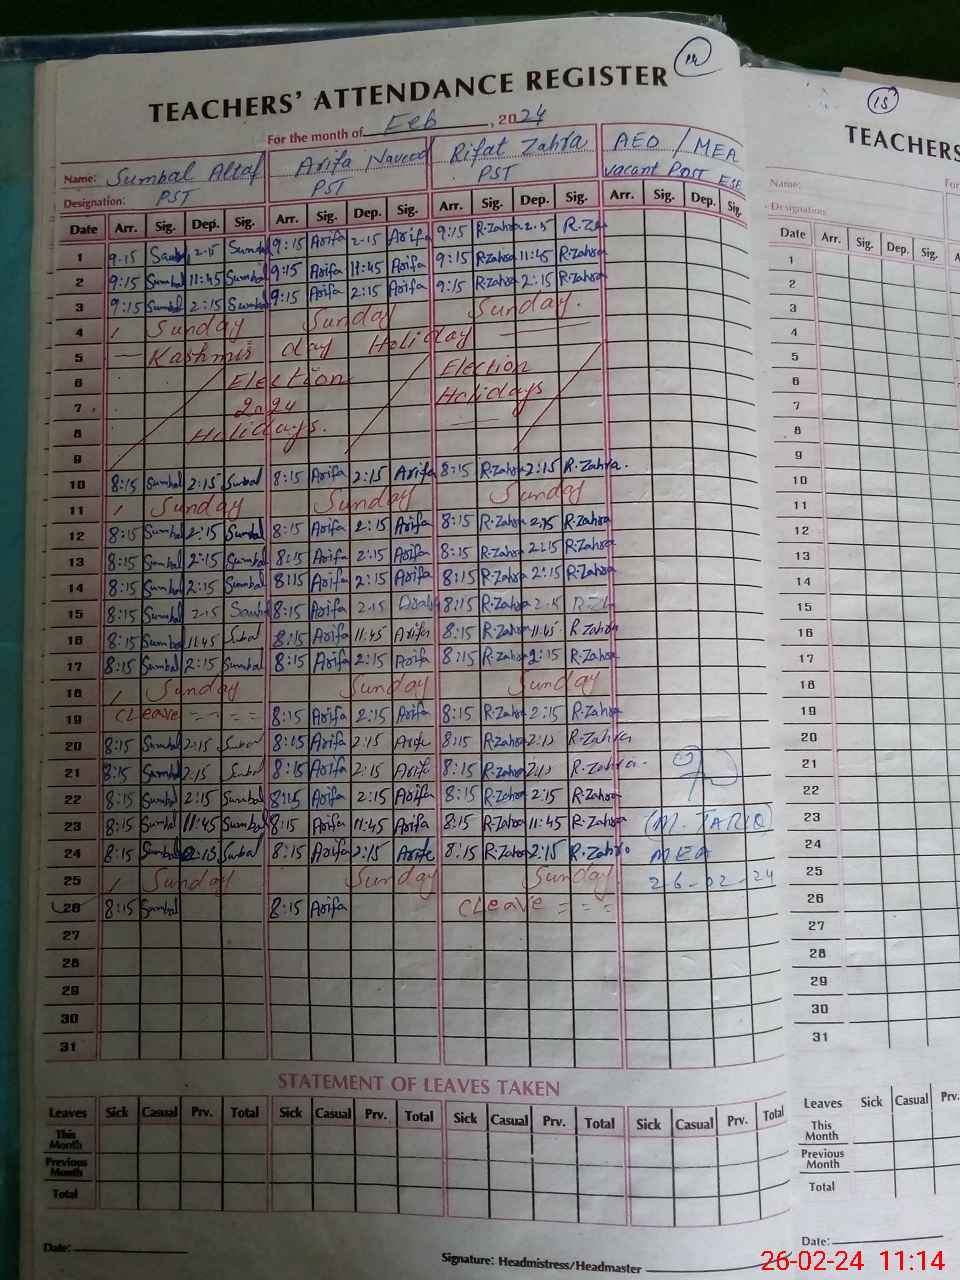 14
TEACHERS' ATTENDANCE REGISTER
For the month of Feb, 2024
Name: Sumbal Altaf Arifa Naveed Rifat Zahra AEO / MEA
Designation: PST PST PST vacant Post ESE
Date Arr. Sig. Dep. Sig. Arr. Sig. Dep. Sig. Arr. Sig. Dep. Sig. Arr. Sig. Dep. Sig.
1 9-15 Sumbal 2-15 Sumbal 9:15 Arifa 2-15 Arifa 9:15 R.Zahra 2.15
2 9:15 Sumbal 11:45 Sumbal 9:15 Arifa 11:45 Arifa 9:15 R.Zahra 11:45 R.Zahra
3 9:15 Sumbal 2:15 Sumbal 9:15 Arifa 2:15 Arifa 9:15 R.Zahra 2:15 R.Zahra
4 Sunday Sunday Sunday.
5 Kashmir day Holiday
6 Election Election
7 2024 Holidays
8 Holidays.
9
10 8:15 Sumbal 2:15 Sumbal 8:15 Arifa 2:15 Arifa 8:15 R.Zahra 2:15 R.Zahra.
11 Sunday Sunday Sunday
12 8:15 Sumbal 2:15 Sumbal 8:15 Arifa 2:15 Arifa 8:15 R.Zahra 2:15 R.Zahra
13 8:15 Sumbal 2:15 Sumbal 8:15 Arifa 2:15 Arifa 8:15 R.Zahra 2:15 R.Zahra
14 8:15 Sumbal 2:15 Sumbal 8:15 Arifa 2:15 Arifa 8:15 R.Zahra 2:15 R.Zahra
15 8:15 Sumbal 2-15 8:15 Arifa 2-15 8:15 R.Zahra 2-15
16 8:15 Sumbal 11:45 Sumbal 8:15 Arifa 11:45 Arifa 8:15 R.Zahra 11:45 R.Zahra
17 8:15 Sumbal 2:15 Sumbal 8:15 Arifa 2:15 Arifa 8:15 R.Zahra 2:15 R.Zahra
18 Sunday Sunday Sunday
19 CLeave = = = = 8:15 Arifa 2:15 Arifa 8:15 R.Zahra 2:15 R.Zahra
20 8:15 Sumbal 2:15 Sumbal 8:15 Arifa 2:15 Arifa 8:15 R.Zahra 2:15 R.Zahra
21 8:15 Sumbal 2:15 Sumbal 8:15 Arifa 2:15 Arifa 8:15 R.Zahra 2:15 R.Zahra.
22 8:15 Sumbal 2:15 Sumbal 8:15 Arifa 2:15 Arifa 8:15 R.Zahra 2:15 R.Zahra
23 8:15 Sumbal 11:45 Sumbal 8:15 Arifa 11:45 Arifa 8:15 R.Zahra 11:45 R.Zahra (M. TARIQ)
24 8:15 Sumbal 2:15 Sumbal 8:15 Arifa 2:15 Arifa 8:15 R.Zahra 2:15 R.Zahra. MEA
25 Sunday Sunday Sunday 26-02-24
26 8:15 Sumbal 8:15 Arifa CLeave = = =
27
28
29
30
31
STATEMENT OF LEAVES TAKEN
Leaves Sick Casual Prv. Total Sick Casual Prv. Total Sick Casual Prv. Total Sick Casual Prv. Total
This Month
Previous Month
Total
Date:
Signature: Headmistress/Headmaster
15
TEACHERS
Name: For
Designation:
Date Arr. Sig. Dep. Sig. A
1
2
3
4
5
6
7
8
9
10
11
12
13
14
15
16
17
18
19
20
21
22
23
24
25
26
27
28
29
30
31
Leaves Sick Casual Prv.
This Month
Previous Month
Total
Date:
26-02-24 11:14